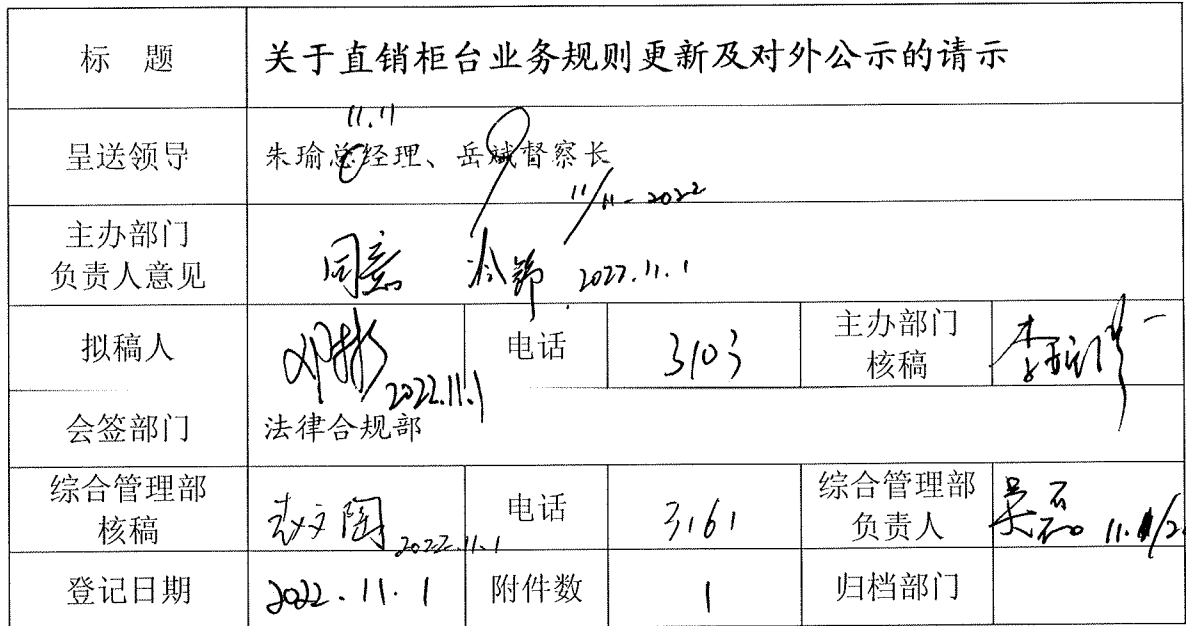 标 题 关于直销柜台业务规则更新及对外公示的请示
11.11
呈送领导 朱瑜总经理、岳斌督察长
11/11-2022
主办部门
负责人意见 同意 2022.11.1
拟稿人 2022.11.1 电话 3103 主办部门
核稿
会签部门 法律合规部
综合管理部
核稿 2022.11.1 电话 3161 综合管理部
负责人 吴磊
登记日期 2022.11.1 附件数 1 归档部门